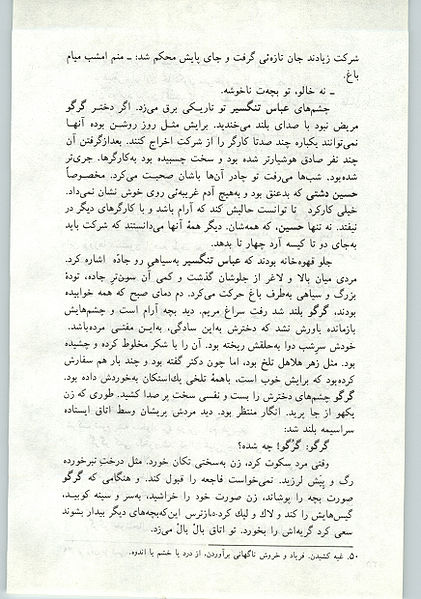 شرکت زیادند جان تازه‌ئی گرفت و جای پایش محکم شد: ـ منم امشب میام
باغ.
ـ نه خالو، تو بچه‌ت ناخوشه.
چشم‌های عباس تنگسیر تو تاریکی برق می‌زد. اگر دختر گرگو
مریض نبود با صدای بلند می‌خندید. برایش مثل روز روشن بوده آنها
نمی‌توانند یکباره چند صدتا کارگر را از شرکت اخراج کنند. بعدازگرفتن آن
چند نفر صادق هوشیارتر شده بود و سخت چسبیده بود به‌کارگرها. جری‌تر
شده‌بود. شب‌ها می‌رفت تو چادر آن‌ها باشان صحبت می‌کرد. مخصوصاً
حسین دشتی که بدعنق بود و به‌هیچ آدم غریبه‌ئی روی خوش نشان نمی‌داد.
خیلی کارکرد تا توانست حالیش کند که آرام باشد و با کارگرهای دیگر در
نیفتد. نه تنها حسین، که همه‌شان. دیگر همهٔ آنها می‌دانستند که شرکت باید
به‌جای دو تا کیسه آرد چهار تا بدهد.
جلو قهوه‌خانه بودند که عباس تنگسیر به‌سیاهی رو جادّه اشاره کرد.
مردی میان بالا و لاغر از جلوشان گذشت و کمی آن سوی‌ترِ جاده، تودهٔ
بزرگ و سیاهی به‌طرف باغ حرکت می‌کرد. دم دمای صبح که همه خوابیده
بودند، گرگو بلند شد رفت سراغ مریم. دید بچه آرام است و چشم‌هایش
بازمانده باورش نشد که دخترش به‌این سادگی، به‌ایـن مفتـی مرده‌باشد.
خودش سرِشب دوا به‌حلقش ریخته بود. آن را با شکر مخلوط کرده و چشیده
بود. مثل زهر هلاهل تلخ بود، اما چون دکتر گفته بود و چند بار هم سفارش
کرده‌بود که برایش خوب است، باهمهٔ تلخی یک‌استکان به‌خوردش داده بود.
گرگو چشم‌های دخترش را بست و نفسی سخت پر صدا کشید. طوری که زن
یکهو از جا پرید. انگار منتظر بود. دید مردش پریشان وسط اتاق ایستاده
سراسیمه بلند شد:
گرگو: گرگو! چه شده؟
وقتی مرد سکوت کرد، زن به‌سختی تکان خورد. مثل درختِ تبرخورده
رگ و پیَش لرزید. نمی‌خواست فاجعه را قبول کند. و هنگامی که گرگو
صورت بچه را پوشاند، زن صورت خود را خراشید، به‌سر و سینه کوبیـد،
گیس‌هایش را کند و لاک و لیک کرد.⁵⁰ ازترس این‌که‌بچه‌های دیگر بیدار بشوند
سعی کرد گریه‌اش را بخورد. تو اتاق بال‌بال می‌زد.
۵۰. غیه کشیدن. فریاد و خروش ناگهانی برآوردن، از درد یا خشم یا اندوه.